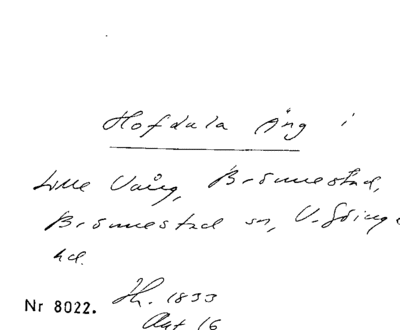 Hofdala Äng i
Lille Vång, Brönnestad,
Brönnestad sn, V. Göinge
hd.
Nr 8022. Hh. 1833
Akt 16